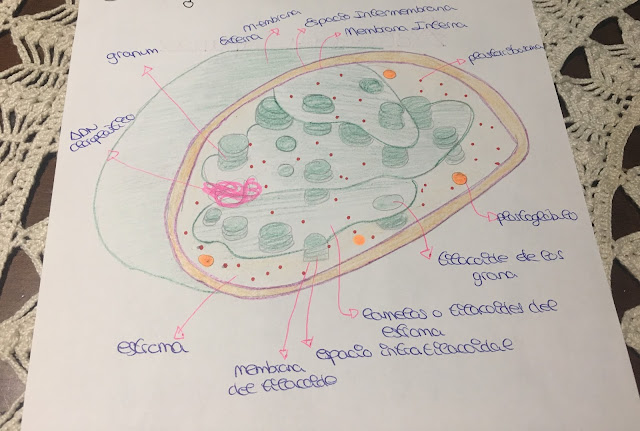 membrana
externa
Espacio Intermembrana
Membrana Interna
granum
plastirribosoma
ADN
plastoglóbulo
tilacoide de los
grana
lamelas o tilacoides del
estroma
estroma
membrana
del tilacoide
espacio intratilacoidal